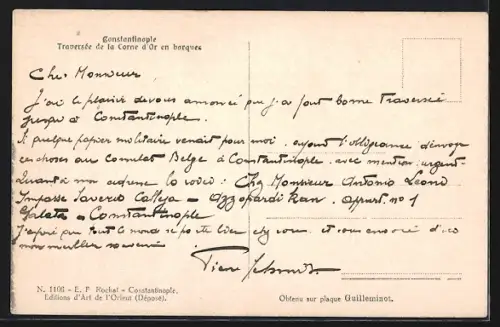 Constantinople
Traversée de la Corne d'Or en barques
Cher Monsieur
J'ai le plaisir de vous annoncer que j'ai fait bonne traversée
jusqu'à Constantinople.
Si quelque papier militaire venait pour moi, ayez l'obligeance d'envoyer
ces choses au consulat Belge à Constantinople, avec mention: urgent.
Quant à mon adresse la voici: Chez Monsieur Antonio Leoni
Impasse Saverio Calleja - Azzopardi Han. Appart. nº 1
Galata - Constantinople
J'espère que tout le monde se porte bien chez vous et vous envoie d'ici
mon meilleur souvenir
Pierre
N. 1106 - E. F. Rochat - Constantinople.
Editions d'Art de l'Orient (Déposé).
Obtenu sur plaque Guilleminot.